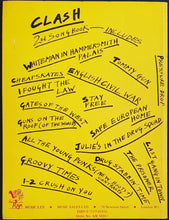 CLASH
2nd SONG BOOK
INCLUDES
WHITEMAN IN HAMMERSMITH
PALAIS
TOMMY GUN
PRESSURE DROP
CHEAPSKATES
ENGLISH CIVIL WAR
I FOUGHT THE
LAW
STAY
FREE
GATES OF THE WEST
SAFE EUROPEAN
HOME
GUNS ON THE
ROOF (OF THE WORLD)
JULIE'S IN THE DRUG SQUAD
ALL THE YOUNG PUNKS
DRUG STABBIN' TIME
LAST GANG IN TOWN
GROOVY TIMES
THE PRISONER
1-2 CRUSH ON YOU
MUSIC SALES LTD.